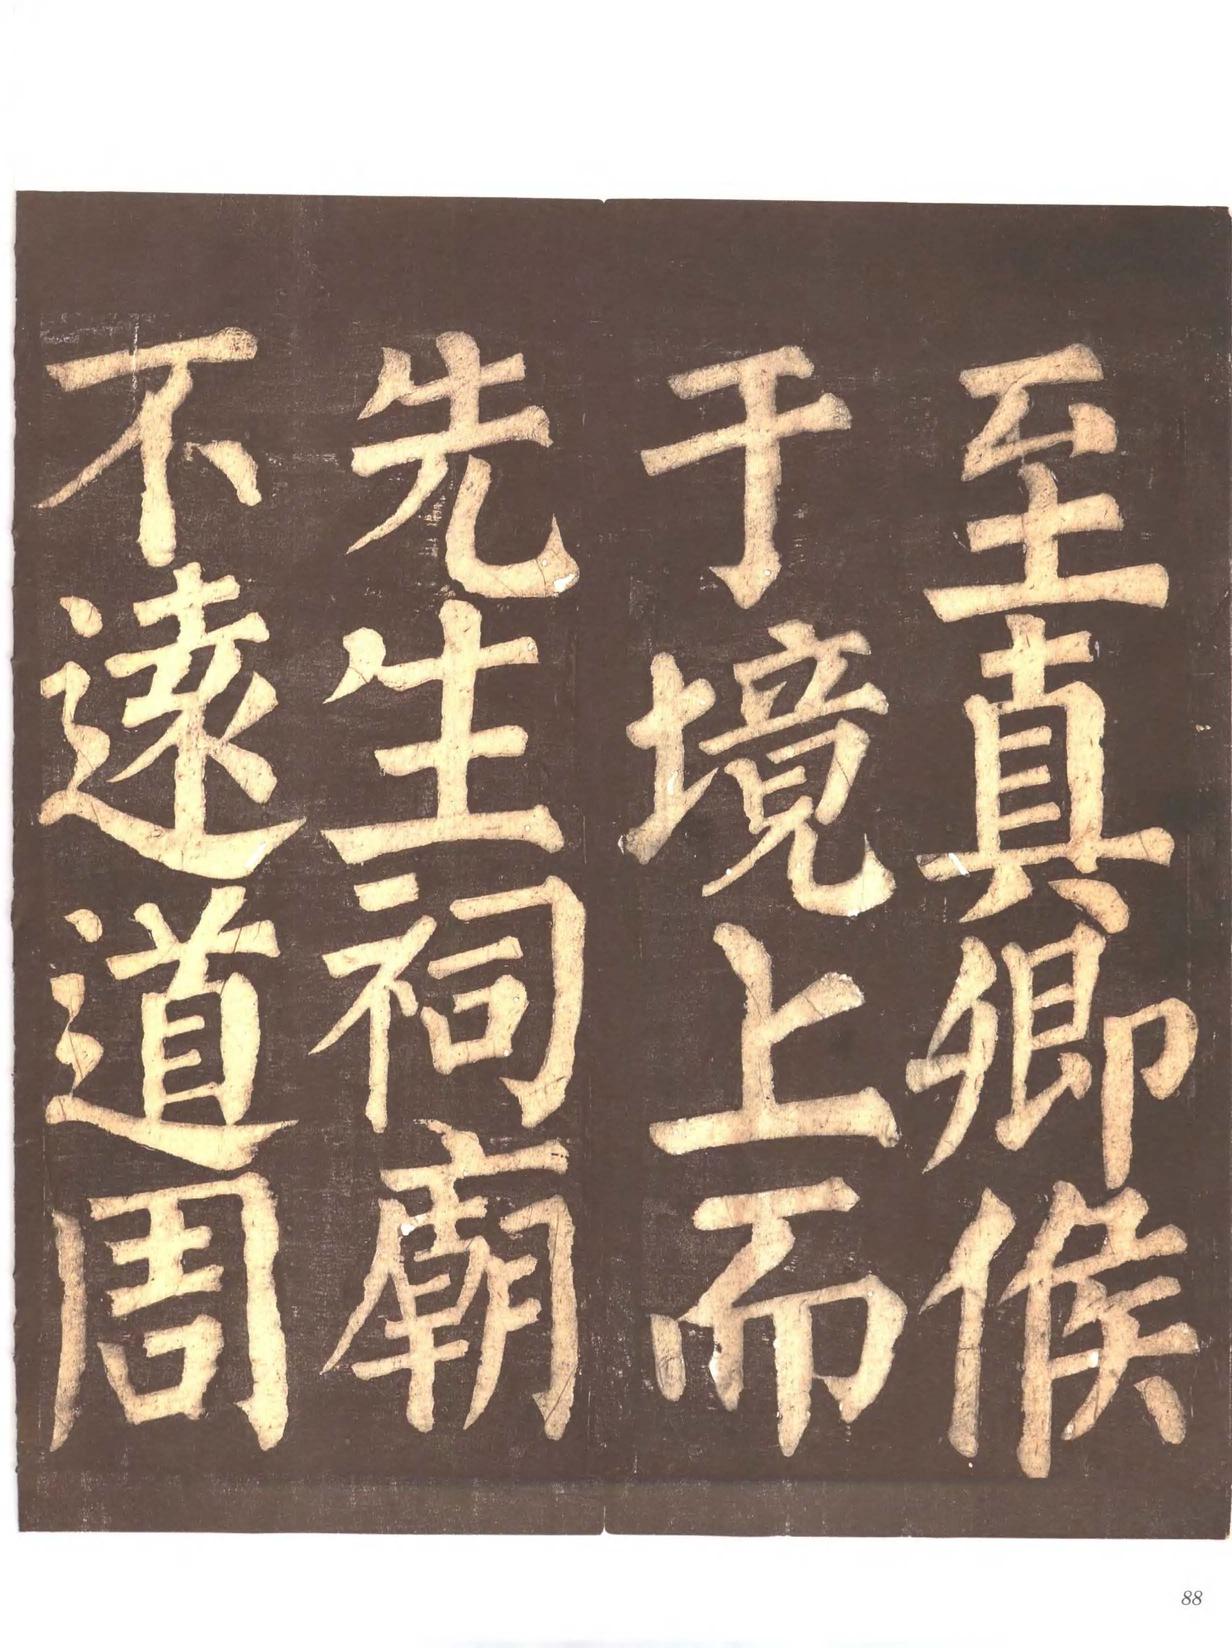 至真卿候
于境上而
先生祠廟
不遠道周
88